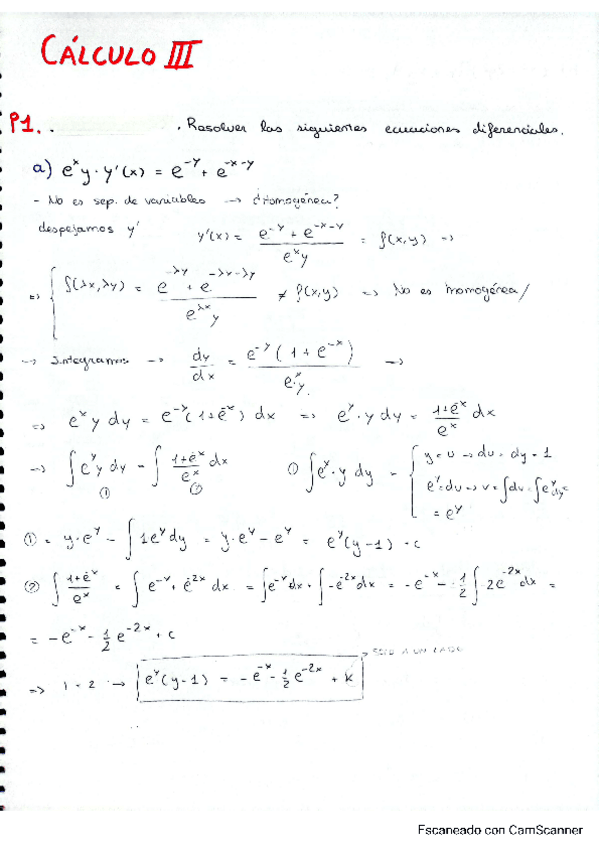 CÁLCULO III
P1. . . Resolver las siguientes ecuaciones diferenciales.
a) e^x y · y'(x) = e^-y + e^-x-y
- No es sep. de variables → ¿Homogénea?
despejamos y' y'(x) = (e^-y + e^-x-y) / (e^x y) = f(x,y) →
⇒ { f(λx,λy) = (e^-λy + e^-λx-λy) / (e^λx y) ≠ f(x,y) ⇒ No es homogénea/
→ Integramos → dy/dx = e^-y (1 + e^-x) / (e^x y) →
⇒ e^x y dy = e^-y (1+e^-x) dx ⇒ e^y · y dy = (1+e^-x)/e^x dx
→ ∫ e^y y dy = ∫ (1+e^-x)/e^x dx ① ∫ e^y · y dy = { y = u → du = dy = 1
① ② e^y = dv → v = ∫dv = ∫e^y dy =
= e^y
① = y · e^y - ∫ 1 e^y dy = y · e^y - e^y = e^y (y-1) + c
② ∫ (1+e^-x)/e^x = ∫ e^-x + e^-2x dx = ∫ e^-x dx + ∫ -e^-2x dx = -e^-x - 1/2 ∫ 2e^-2x dx =
= -e^-x - 1/2 e^-2x + c
→ SOLO A UN LADO
⇒ 1 = 2 → e^y (y-1) = -e^-x - 1/2 e^-2x + k
Escaneado con CamScanner